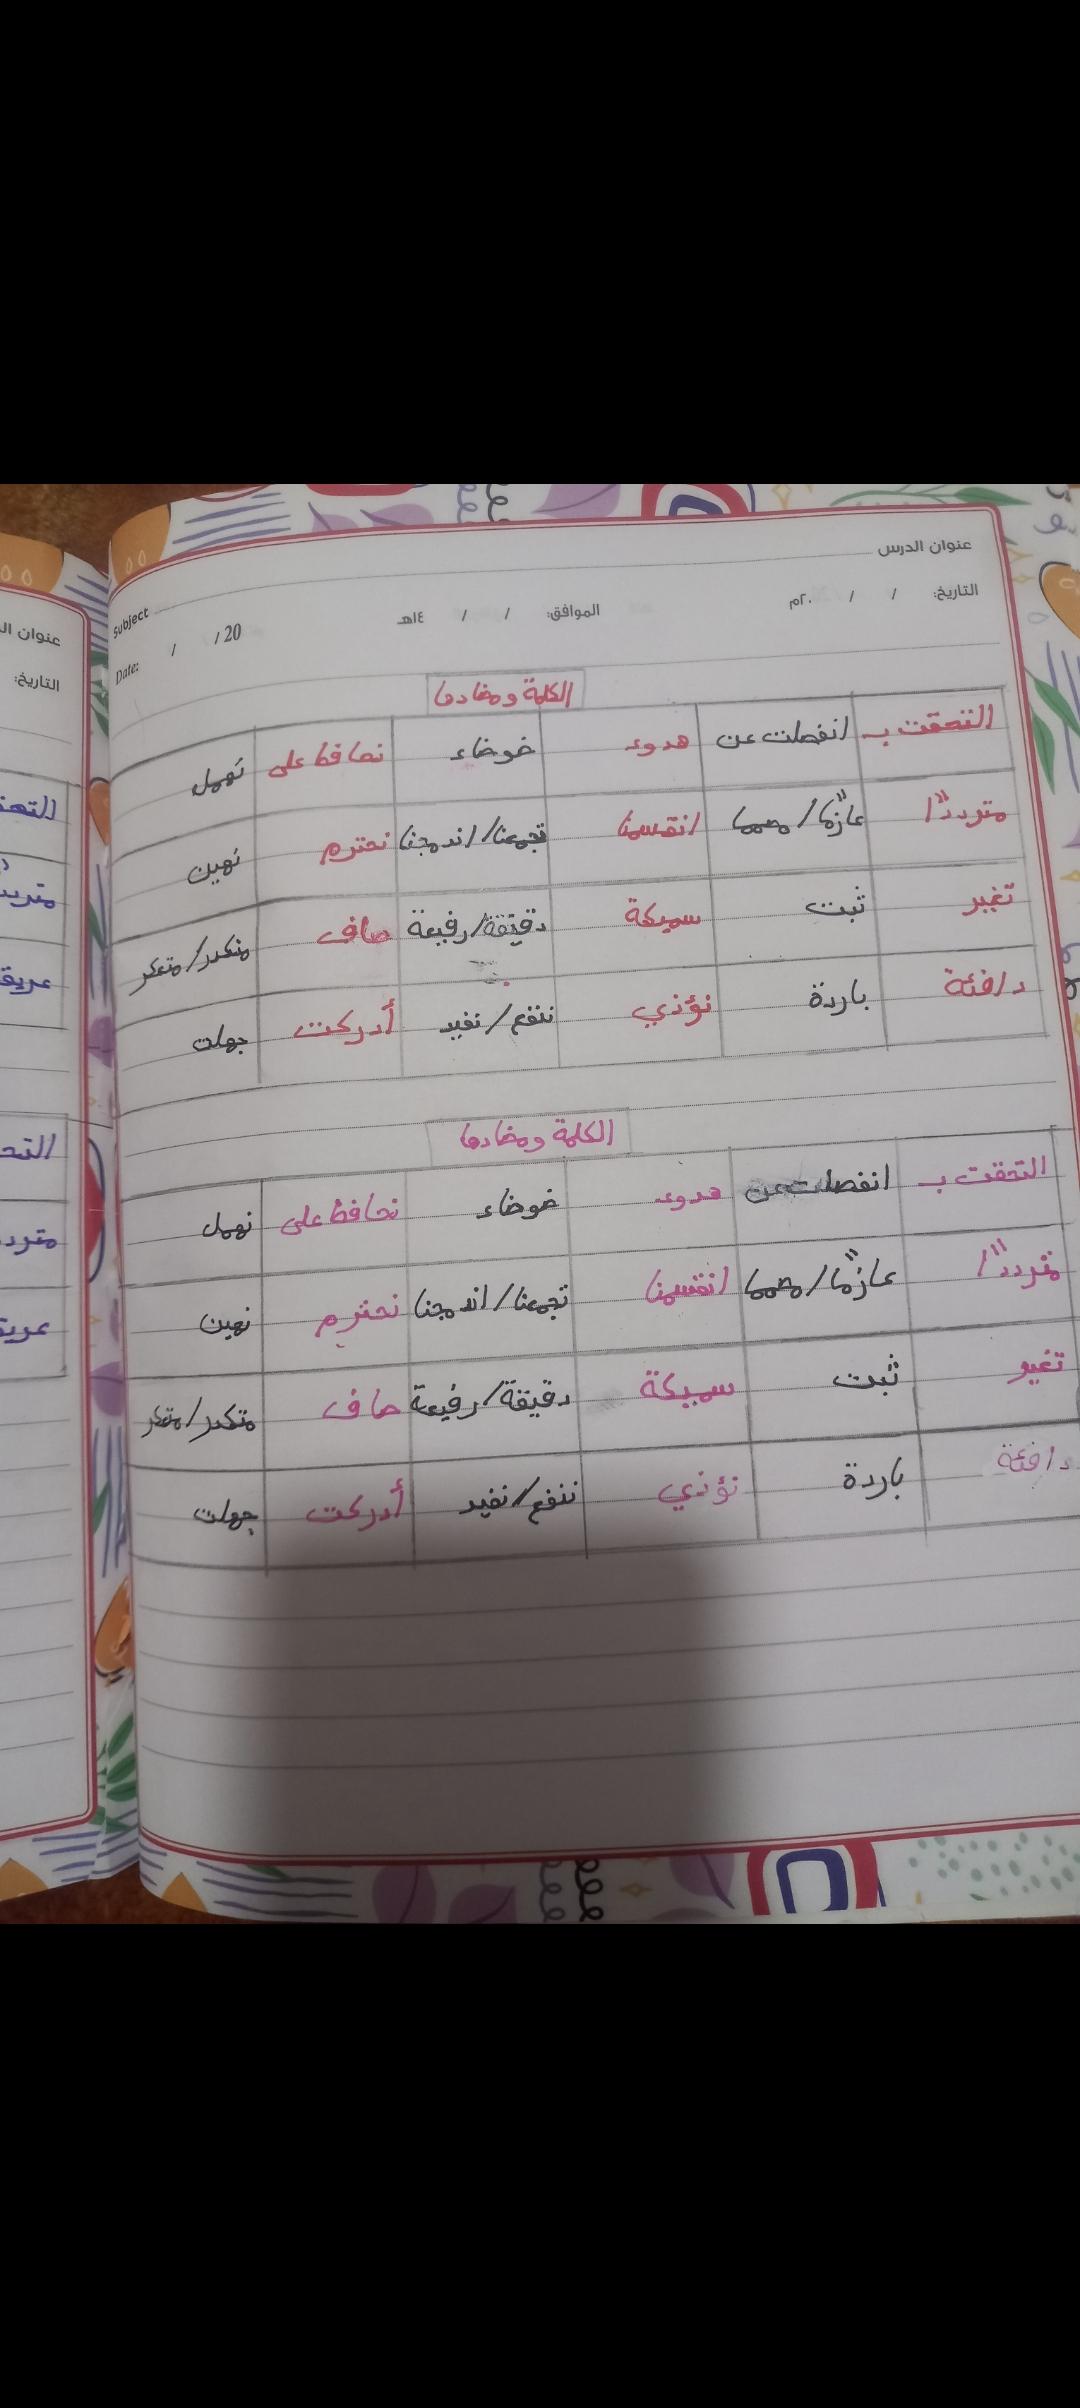 عنوان الدرس
التاريخ: / / ٢٠م الموافق: / / ١٤هـ
Subject
Date: / / 20
الكلمة ومضادها
التحقت بـ انفصلت عن هدوء ضوضاء نحافظ على نهمل
مترددًا عازمًا/مصمما انقسمنا تجمعنا/اندمجنا نحترم نهين
تغير ثبت سميكة دقيقة/رفيعة صاف متكدر/متعكر
دافئة باردة نؤذي ننفع/نفيد أدركت جهلت
الكلمة ومضادها
التحقت بـ انفصلت عن هدوء ضوضاء نحافظ على نهمل
مترددًا عازمًا/مصمما انقسمنا تجمعنا/اندمجنا نحترم نهين
تغير ثبت سميكة دقيقة/رفيعة صاف متكدر/متعكر
دافئة باردة نؤذي ننفع/نفيد أدركت جهلت
عنوان ال
التاريخ: